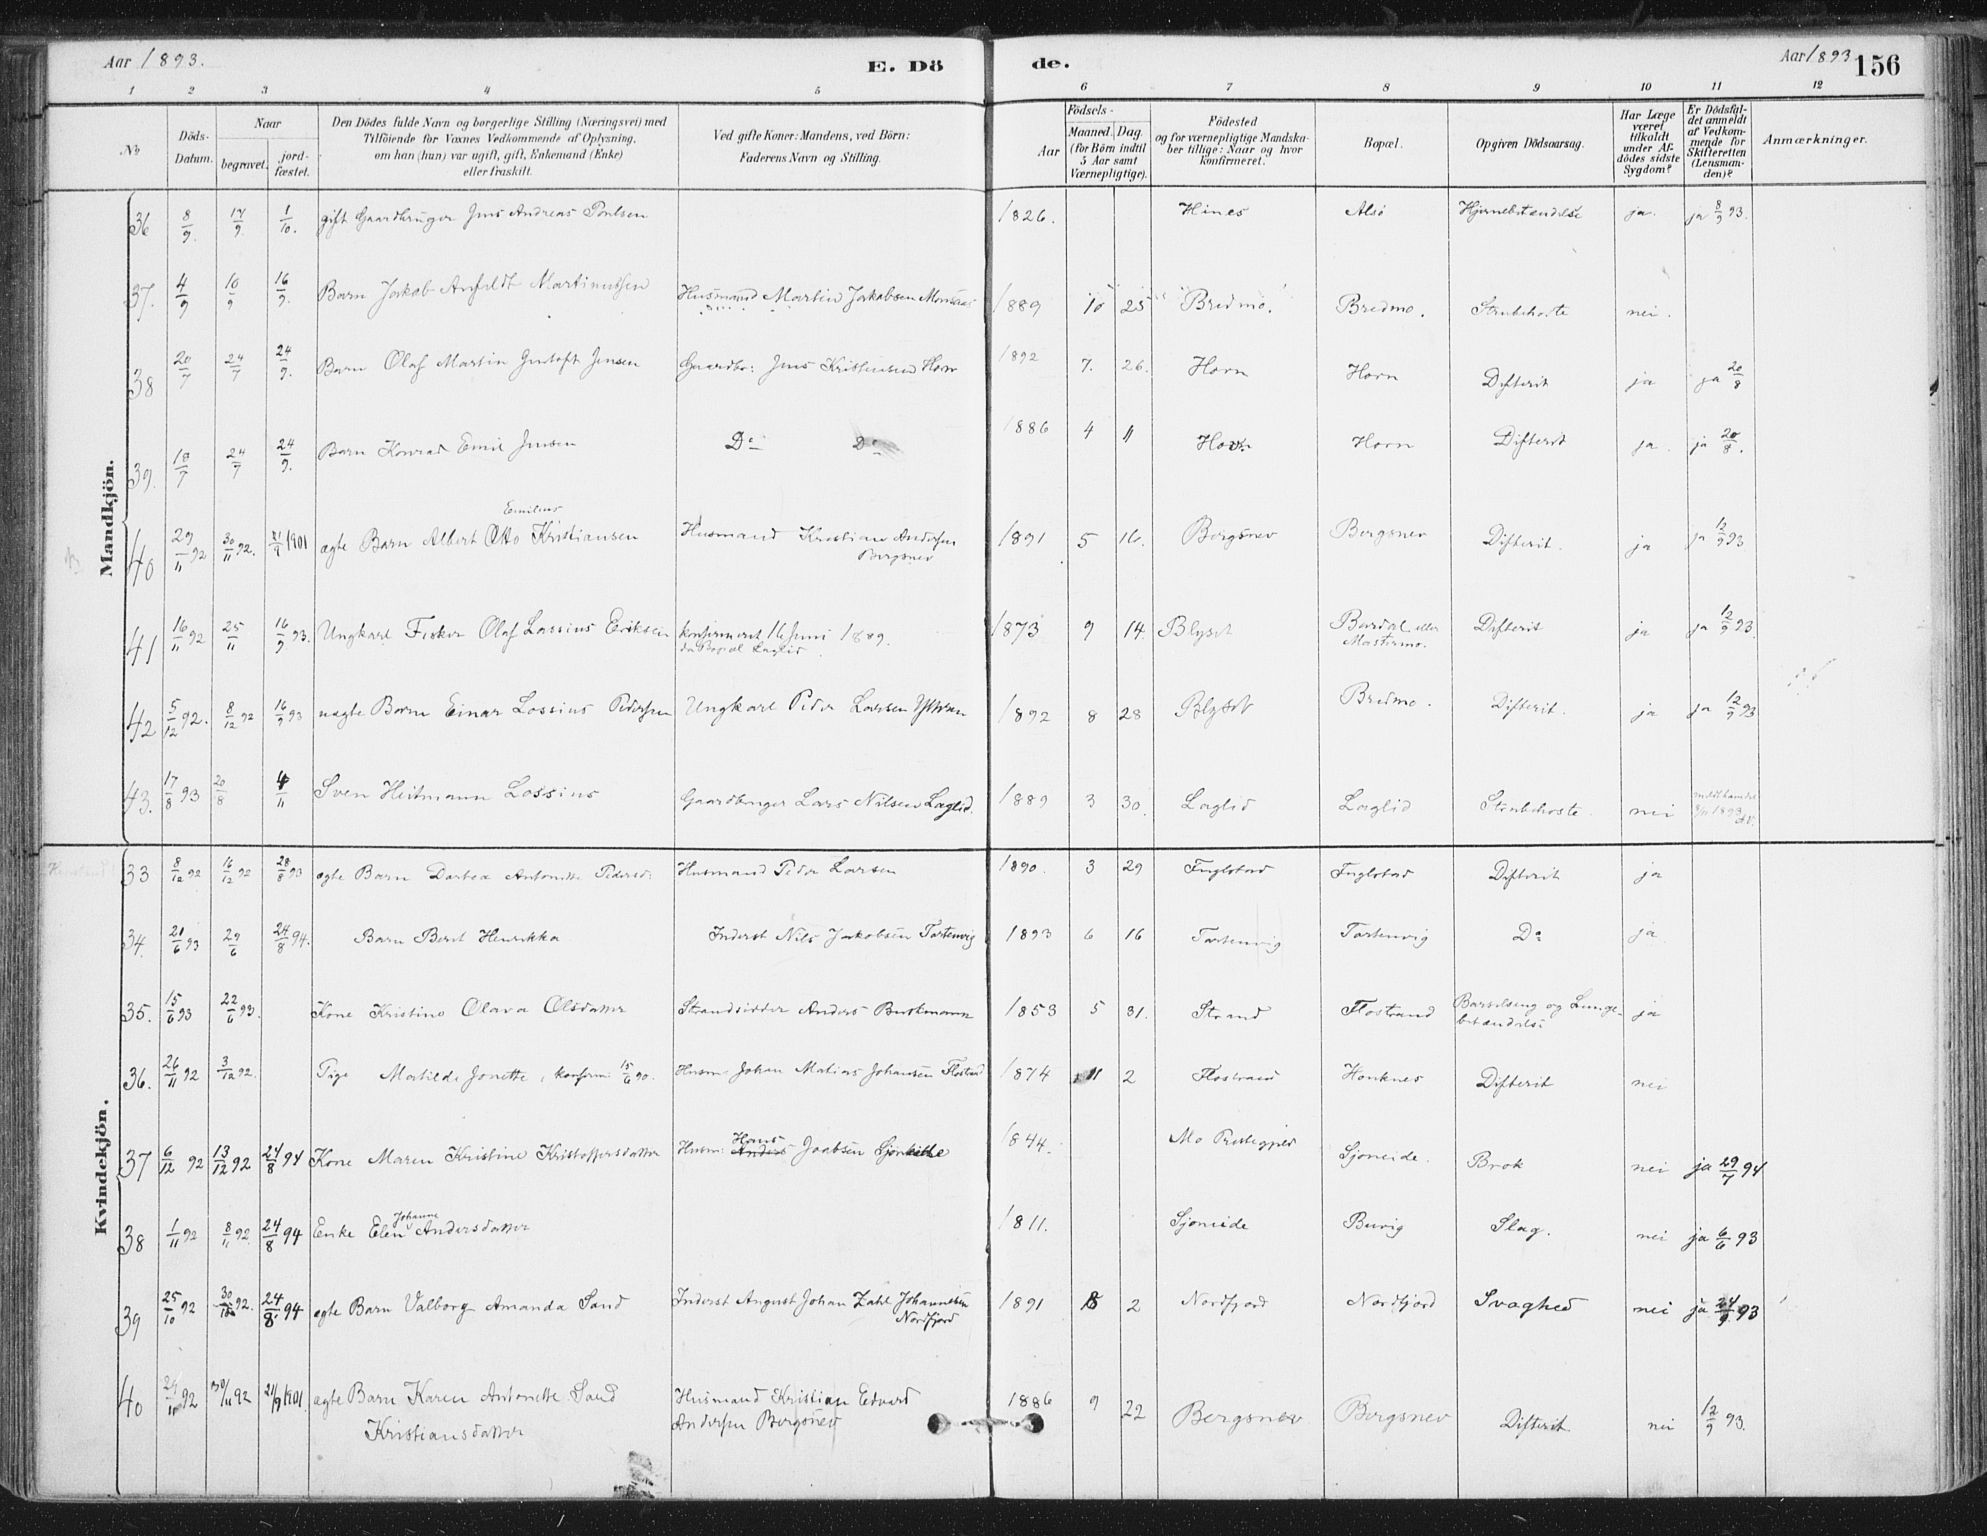 Aar 1893. E. Dö de. Aar 1893 156
1 2 3 4 5 6 7 8 9 10 11 12
No
Döds-Datum.
Naar
begravet.
jord-fæstet.
Den Dödes fulde Navn og borgerlige Stilling (Næringsvei) med
Tilföiende for Voxnes Vedkommende af Oplysning,
om han (hun) var ugift, gift, Enkemand (Enke)
eller fraskilt.
Ved gifte Koner: Mandens, ved Börn:
Faderens Navn og Stilling.
Aar
Födsels-
Maaned. Dag.
(for Börn indtil
5 Aar samt
Værnepligtige).
Födested
og for værnepligtige Mandska-
ber tillige: Naar og hvor
konfirmeret.
Bopæl.
Opgiven Dödsaarsag.
Har Læge
været
tilkaldt
under Af-
dödes sidste
Sygdom?
Er Dödsfal-
det anmeldt
af Vedkom-
mende for
Skifteretten
(Lensman-
den)?
Anmærkninger.
Mandkjön.
36 8/9. 17/9. 1/10. gift Gaardbruger Jens Andreas Poulsen 1826. Hines Alsö Hjernebetændelse ja. ja 8/9 93.
37. 4/9 10/9 16/9. Barn Jakob Anfeldt Martinussen Husmand Martin Jakobsen 1889 10 25 Bredmo. Bredmo. Strubehoste nei.
38 20/7 24/7 24/9. Barn Olaf Martin Gustaft Jensen Gaardbr: Jens Kristensen Horn 1892 7. 26. Horn Horn Difterit ja ja 20/8
39. 18/7 24/7 24/9. Barn Konrad Emil Jensen Do Do 1886 4 11 Horn Horn Difterit ja. ja 20/8.
Emilius
40 29/11 92 30/11 92. 21/9 1901 ægte Barn Albert Otto Kristiansen Husmand Kristian Andersen 1891 5 16. Bergsnev Bergsnev Difterit. ja ja 12/9 93
Bergsnev
41 16/11 92 25/11 16/9 93. Ungkarl Fisker Olaf Lassius Eriksen konfirmeret 16 Juni 1889. 1873 9 14. Blyset Bardal eller Difterit ja ja 12/9 93.
da Bopæl Laglid Mastermo.
42 5/12 92. 8/12 92 16/9 93 uægte Barn Einar Lossius Pedersen Ungkarl Peder Larsen 1892 8 28 Blyset Bredmo. Difterit. ja ja 12/9 93
43. 17/8 93 20/8 4/11 Sven Heitmann Lossius Gaardbruger Lars Nilsen Laglid. 1889 3 30. Laglid Laglid Strubehoste. nei
8/11 1893
Kvindekjön.
33 8/12 92 16/12 92 28/8 93 ægte Barn Dortea Antonette Pedersd: Husmand Peder Larsen 1890. 3 29 Fuglstad Fuglstad Difterit ja
34. 21/6 93 29/6 24/8 94. Barn Berit Henrikka Inderst Nils Jakobsen Tortenvig 1893 6 16 Tortenvig Tortenvig Do ja
35. 15/6 93 22/6 93. Kone Kristine Olava Olsdatter Strandsidder Anders Burkmann 1853 5 31. Strand Flostrand Barselseng og Lunge- ja
betændelse
36. 26/11 92 3/12 92. Pige Matilde Jonette, konfirm. 15/6 90. Husm. Johan Matias Johansen Flostrand 1874 11 2 Flostrand Honknes Difterit nei
Hans
37 6/12 92 13/12 92 24/8 94 Kone Maren Kristine Kristoffersdatter Husm: Anders Joabsen 1844. Mo Prestegjeld Sjoneide. Brok nei ja 29/7 94
Johanne
38 1/11 92 8/11 92 24/8 94 Enke Elen Andersdatter 1811. Sjoneide Buvig Slag. nei ja 6/6 93
39 25/10 92 30/10 92. 24/8 94 ægte Barn Valborg Amanda Sand Inderst August Johan Zahl Johannesen 1891 8 2 Nordfjord Nordfjord Svaghed nei ja 24/9 93
Nordfjord
40 29/11 92 30/11 92 21/9 1901. ægte Barn Karen Antonette Sand Husmand Kristian Edvard 1886 9 22 Bergsnev Bergsnev Difterit. nei 12/9 93.
Kristiansdatter Andersen Bergsnev